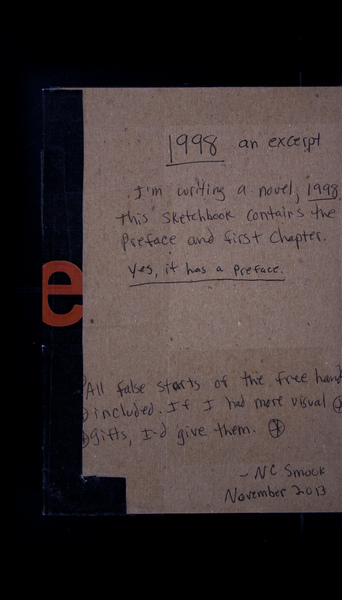 1998 an excerpt
I'm writing a novel, 1998.
This sketchbook contains the
Preface and first chapter.
Yes, it has a Preface.
e
All false starts of the free hand
included. If I had more visual
gifts, I'd give them.
- NC Smook
November 2013